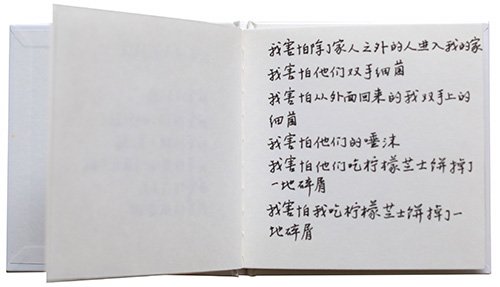 我害怕除了家人之外的人进入我的家
我害怕他们双手细菌
我害怕从外面回来的我双手上的
细菌
我害怕他们的唾沫
我害怕他们吃柠檬芝士饼掉了
一地碎屑
我害怕我吃柠檬芝士饼掉了一
地碎屑